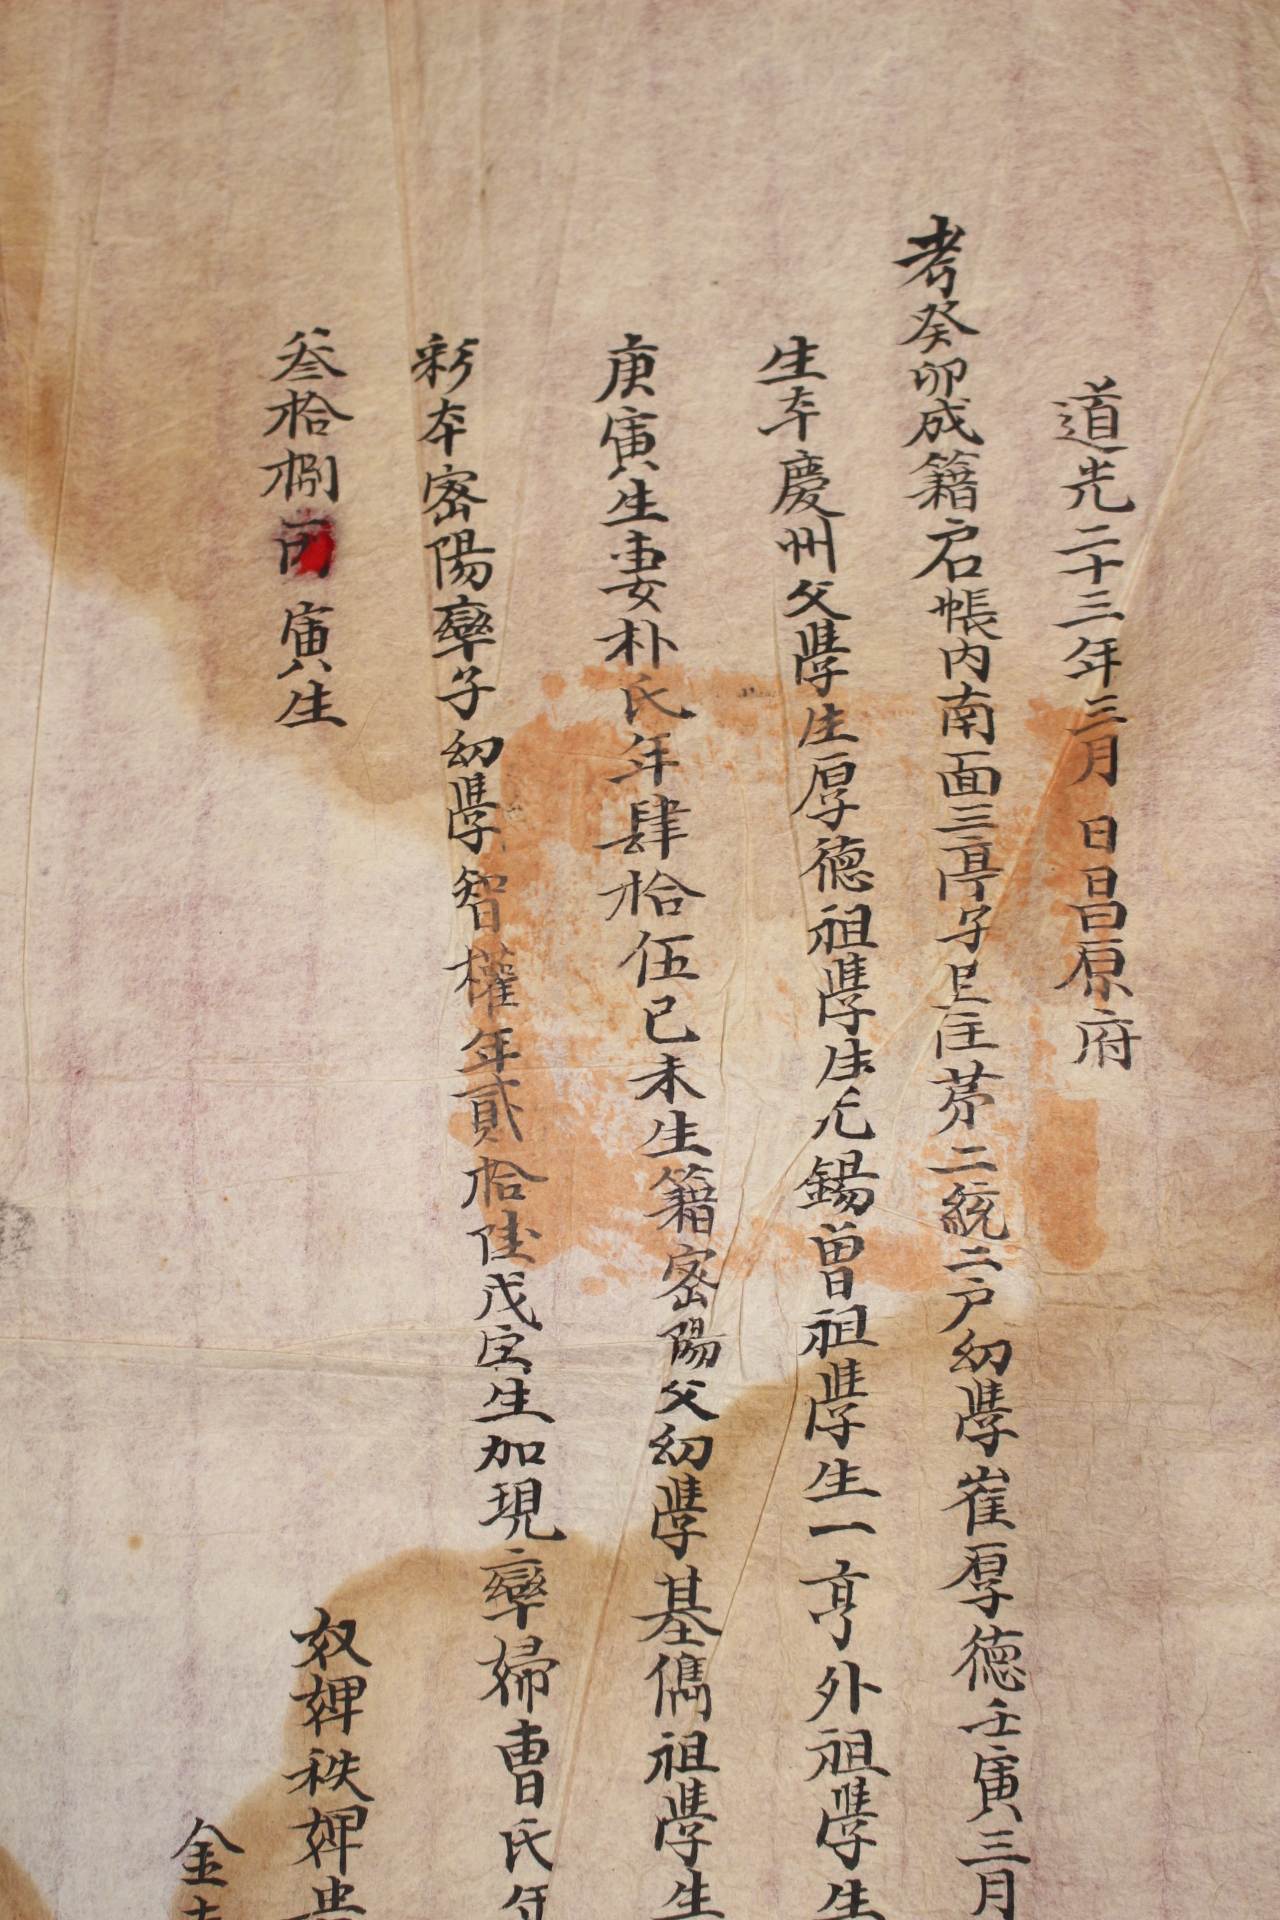 道光二十三年三月 日昌原府
考癸卯成籍戶帳內南面三亭子里住茅二統二戶幼學崔厚德壬寅三月
生本慶州父學生厚德祖學生元錫曾祖學生一亨外祖學生
庚寅生妻朴氏年肆拾伍己未生籍密陽父幼學基儁祖學生
彩本密陽率子幼學智權年貳拾陸戊寅生加現率婦曺氏年
叁拾捌丙寅生
奴婢秩婢
金